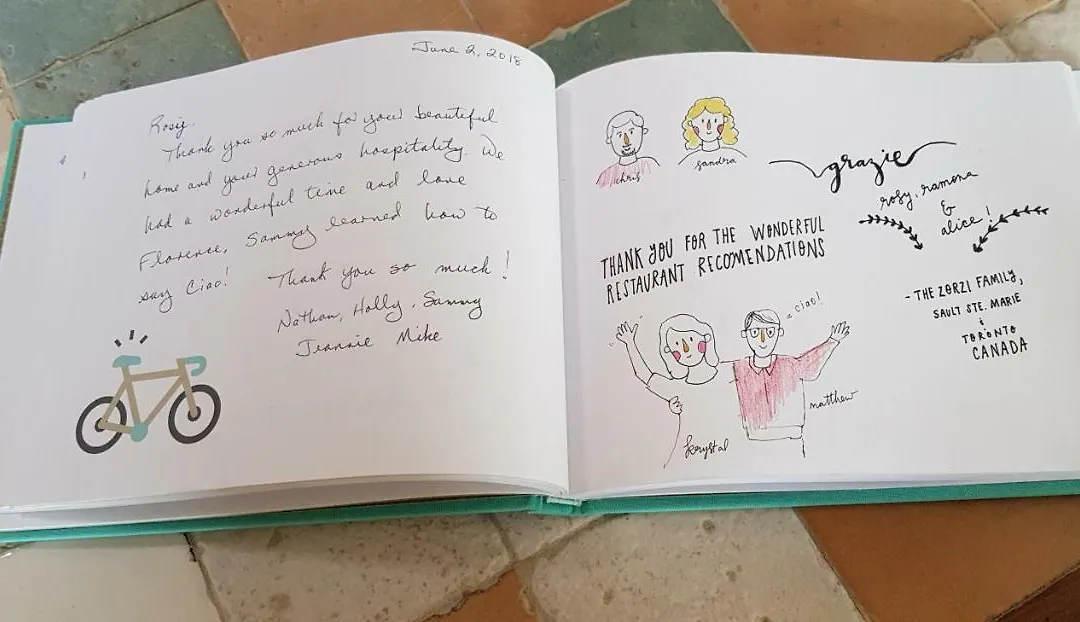 June 2, 2018
Rosy,
Thank you so much for your beautiful
home and your generous hospitality. We
had a wonderful time and love
Florence, Sammy learned how to
say Ciao! Thank you so much!
Nathan, Holly, Sammy
Jeannie Mike
chris
sandra
grazie
rosy, ramona
&
alice!
THANK YOU FOR THE WONDERFUL
RESTAURANT RECOMENDATIONS
- THE ZORZI FAMILY,
SAULT STE. MARIE
&
TORONTO
CANADA
ciao!
matthew
krystal